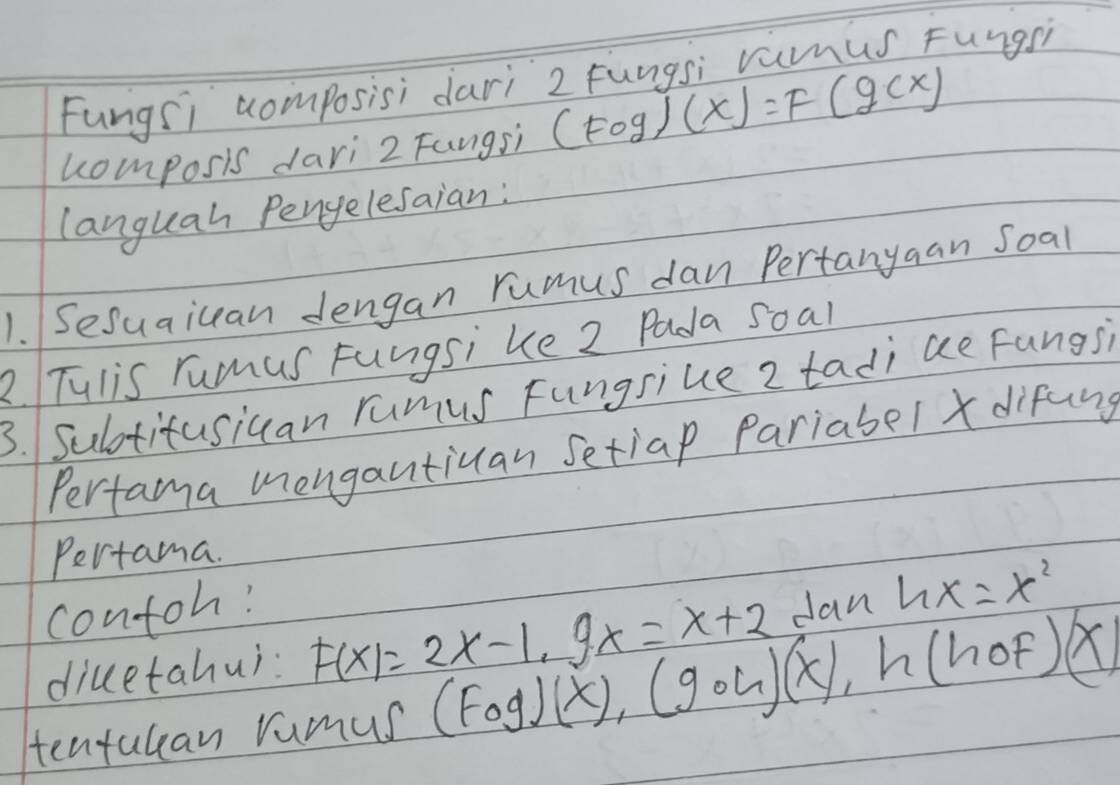 Fungsi komposisi dari 2 Fungsi rumus Fungsi
komposis dari 2 Fungsi (Fog)(x)=F(g(x)
langkah Penyelesaian:
1. Sesuaikan dengan rumus dan Pertanyaan Soal
2. Tulis rumus Fungsi ke 2 Pada Soal
3. Subtitusikan rumus Fungsi ke 2 tadi ke Fungsi
Pertama mengantikan Setiap Pariabel X difung
Pertama.
Contoh:
diketahui: F(x)= 2x-1. gx = x+2 dan hx = x²
tentukan rumus (Fog)(x), (goh)(x), h(hoF)(x)